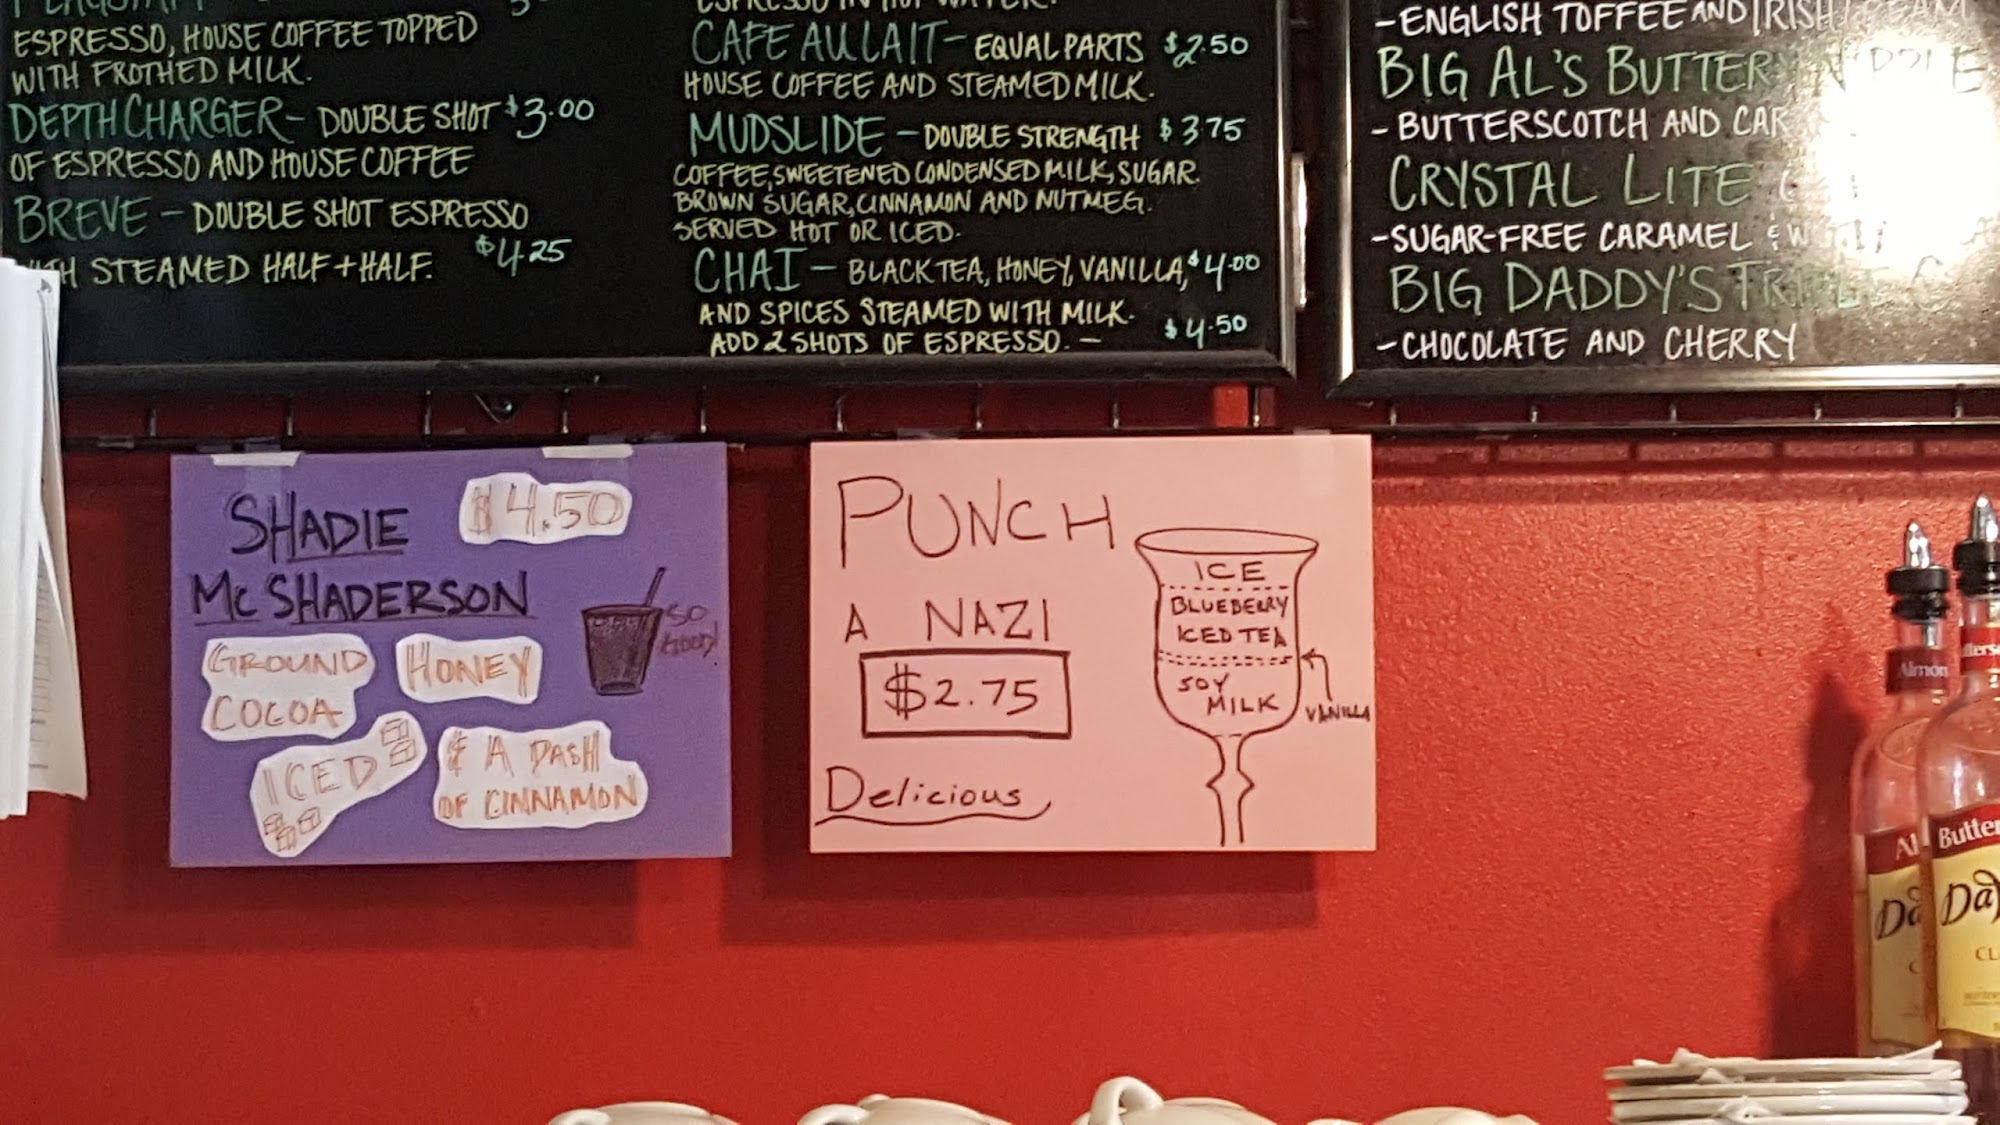 ESPRESSO, HOUSE COFFEE TOPPED
WITH FROTHED MILK.
DEPTH CHARGER - DOUBLE SHOT $3.00
OF ESPRESSO AND HOUSE COFFEE
BREVE - DOUBLE SHOT ESPRESSO
WITH STEAMED HALF + HALF. $4.25
ESPRESSO IN HOT WATER.
CAFE AU LAIT - EQUAL PARTS $2.50
HOUSE COFFEE AND STEAMED MILK.
MUDSLIDE - DOUBLE STRENGTH $3.75
COFFEE, SWEETENED CONDENSED MILK, SUGAR.
BROWN SUGAR, CINNAMON AND NUTMEG.
SERVED HOT OR ICED.
CHAI - BLACK TEA, HONEY, VANILLA, $4.00
AND SPICES STEAMED WITH MILK.
ADD 2 SHOTS OF ESPRESSO. - $4.50
- ENGLISH TOFFEE AND IRISH CREAM
BIG AL'S BUTTERY NIPPLE
- BUTTERSCOTCH AND CAR
CRYSTAL LITE
- SUGAR-FREE CARAMEL &
BIG DADDY'S TRIPLE C
- CHOCOLATE AND CHERRY
SHADIE
McSHADERSON
$4.50
GROUND
COCOA
HONEY
SO
GOOD!
ICED
& A DASH
OF CINNAMON
PUNCH
A NAZI
$2.75
Delicious
ICE
BLUEBERRY
ICED TEA
SOY
MILK
VANILLA
Almon
Butter
Da